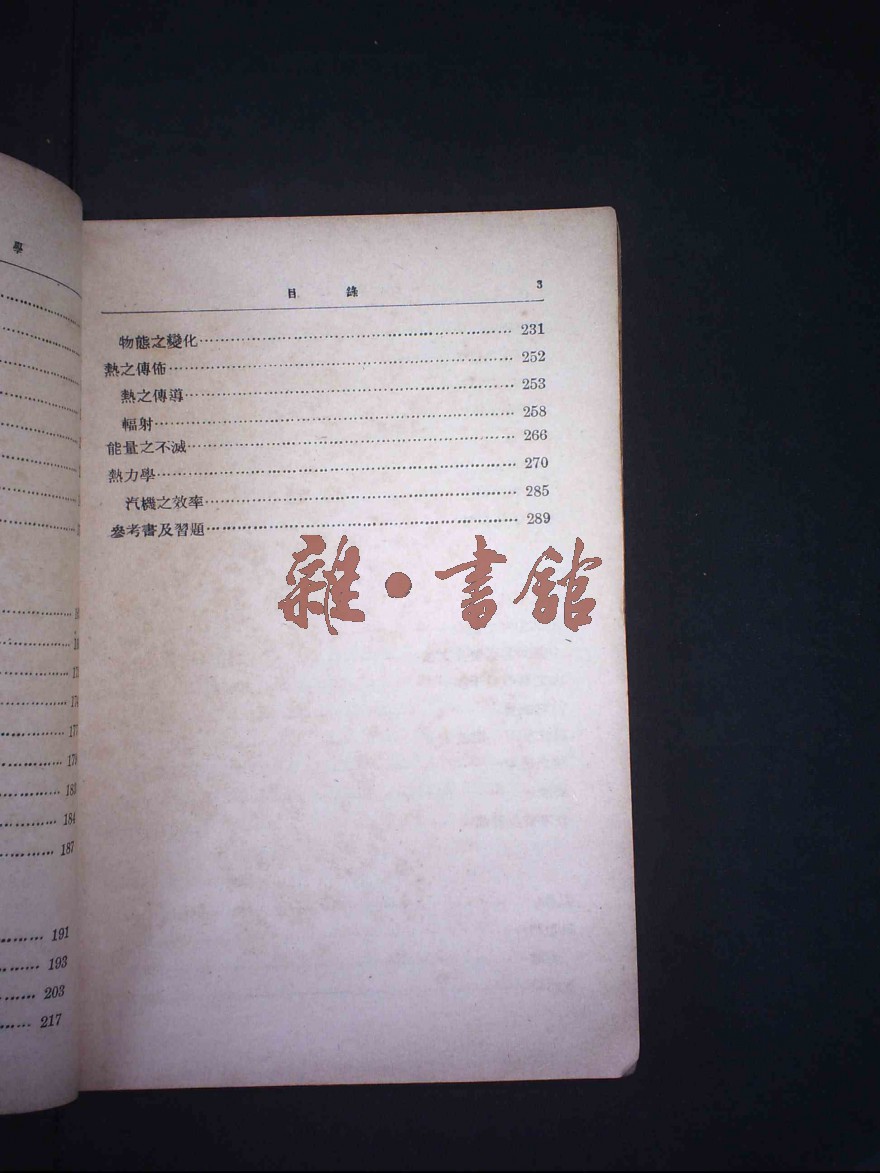 學
191
193
203
217
174
177
179
183
184
187
目 錄 3
物態之變化 231
熱之傳佈 252
熱之傳導 253
輻射 258
能量之不滅 266
熱力學 270
汽機之效率 285
參考書及習題 289
雜·書館